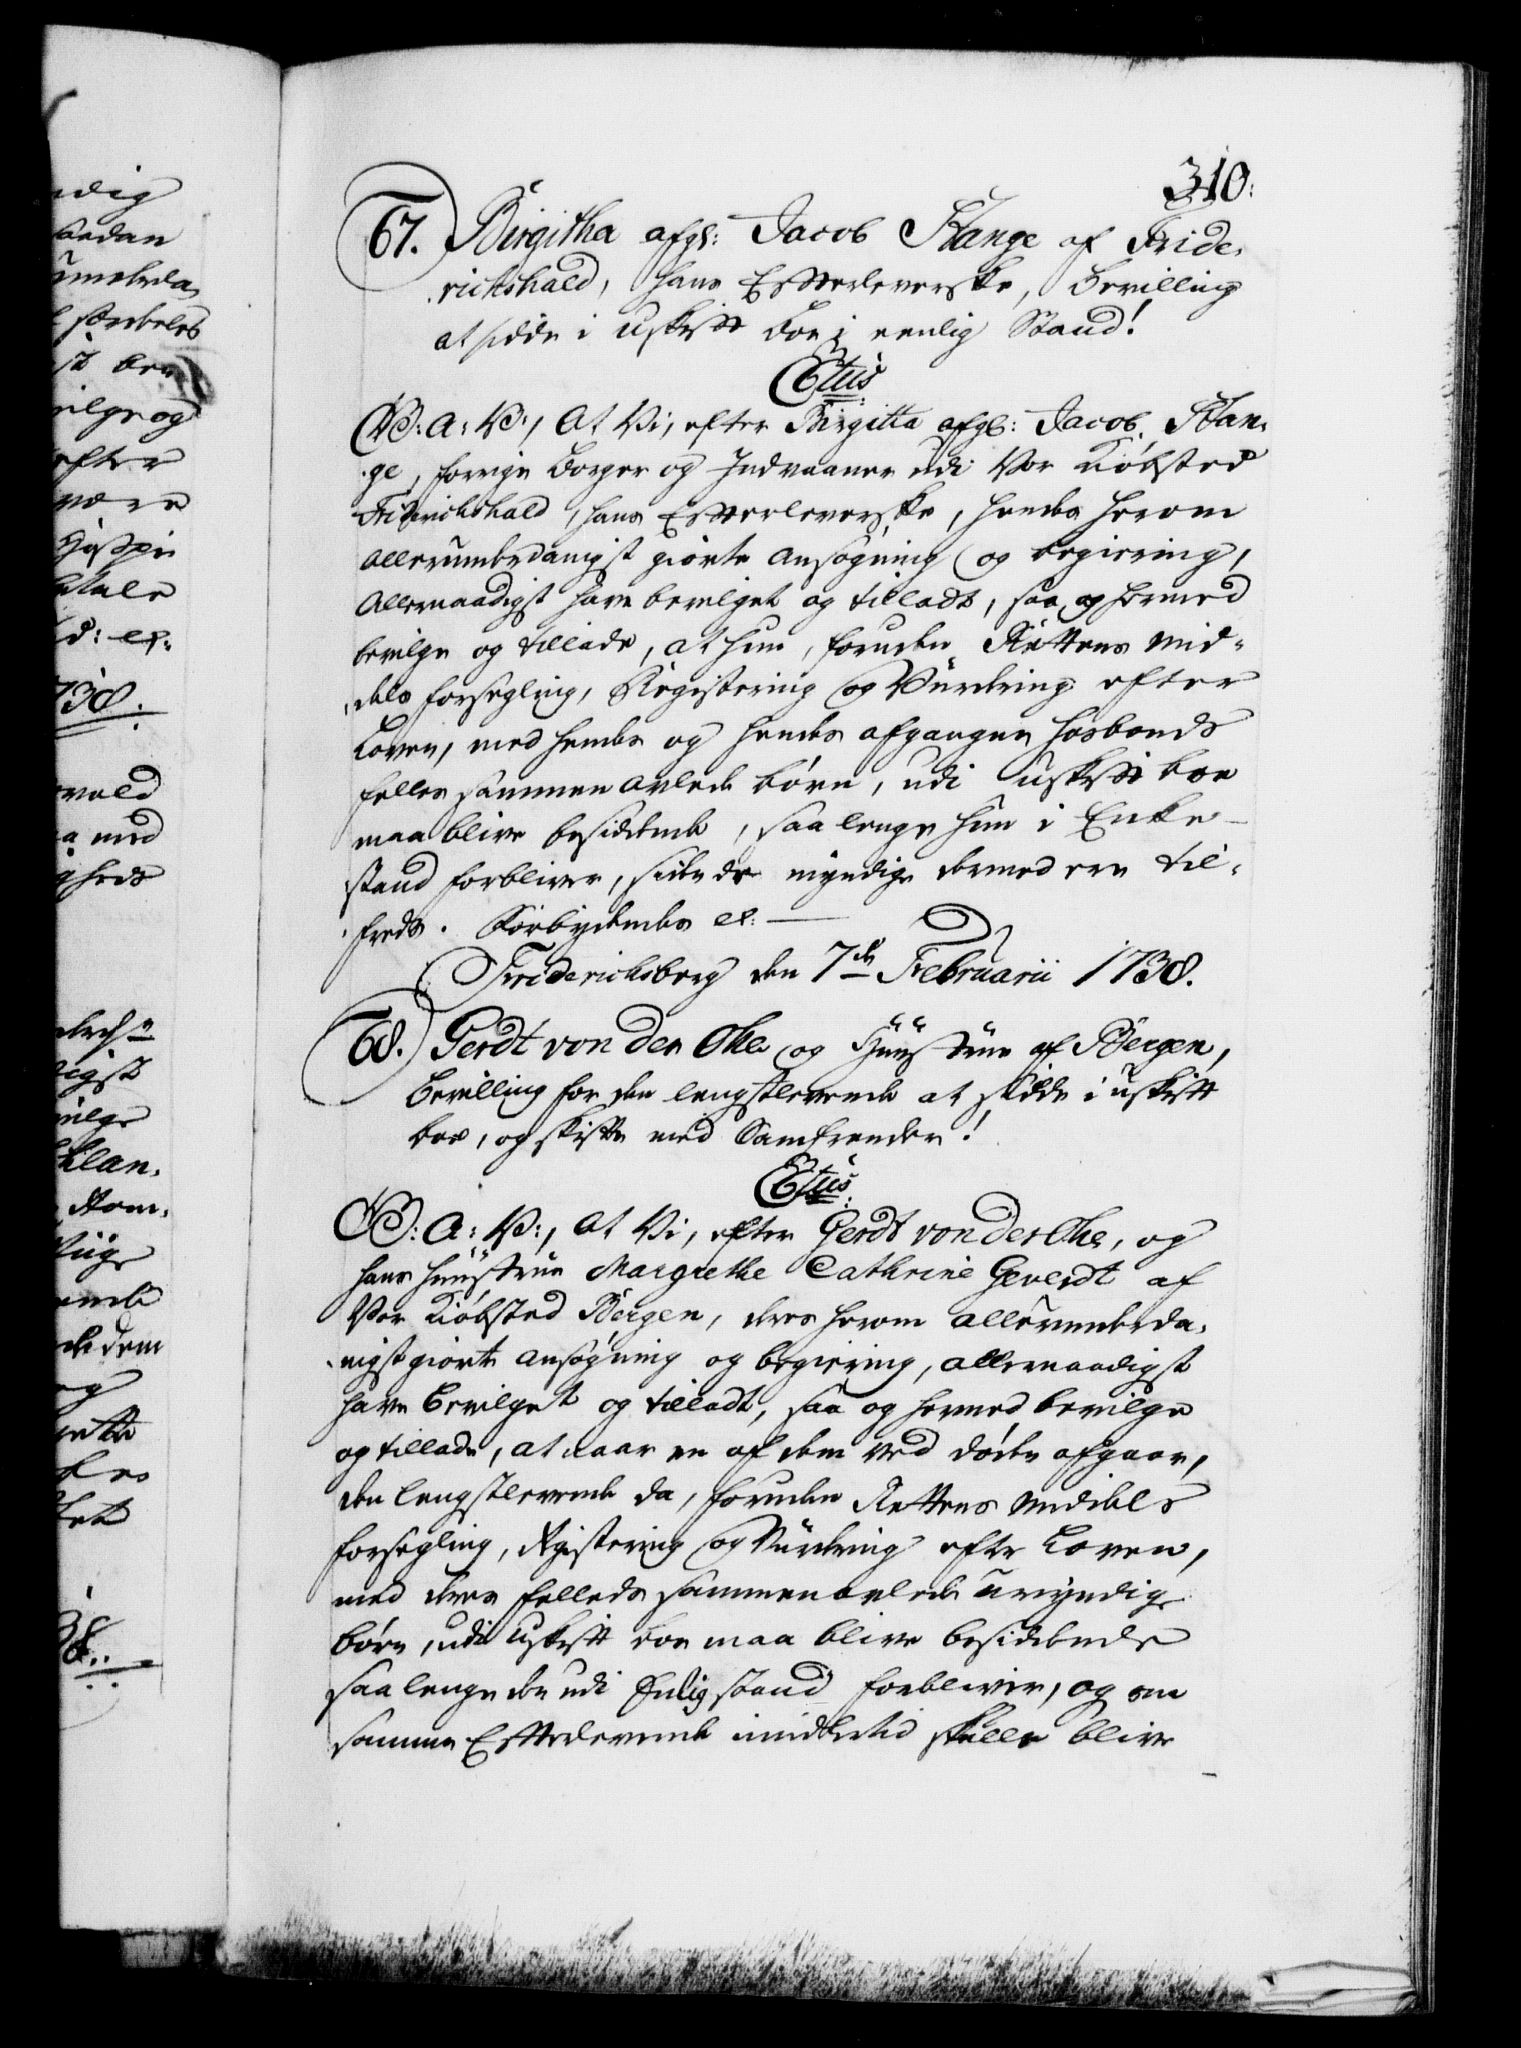 310:
67. Birgitha afgl: Jacob Stange af Fride-
richshald, hans Efterleverske, Bevilling
at sidde i uskift Boe i eenlig Stand!
C6tus
W: A: V:, At Vi, efter Birgitta afgl: Jacob Stan-
ge, forrige Borger og Indvaaner udi Vor Kiøbsted
Friderichshald, hans Efterleverske, hendes herom
allerunderdanigst giorte ansøgning og begiering,
allernaadigst have bevilget og tilladt, saa og hermed
bevilge og tillade, at hun, foruden Rettens Mid-
dels forsegling, Registering og Vurdering efter
Loven, med hendes og hendes afgangne Hosbonds
felles sammen avlede Børn, udi uskift boe
maa blive besiddende, saa lenge hun i Enke-
stand forbliver, saa de myndige dermed ere til-
freds. Forbydendes etc:
Friderichsberg den 7de Februarii 1738.
68. Gerdt von der Ohe og Huustrue af Bergen,
Bevilling for den lengstlevende at sidde i uskift
boe, og skifte med Samfrender!
W: A: V:, At Vi, efter Gerdt von der Ohe, og
hans Huustrue Margrethe Cathrine Geverdt af
Vor Kiøbsted Bergen, deres herom allerunderda-
nigst giorte ansøgning og begiering, allernaadigst
have bevilget og tilladt, saa og hermed bevilge
og tillade, at naar en af dem ved døden afgaar,
den lengstlevende da, foruden Rettens Middels
forsegling, Registering og Vurdering efter Loven,
med deres felleds sammenavlede umyndige
børn, udi uskift boe maa blive besiddende
saa lenge den udi Enlig stand forbliver, og om
samme Efterlevende imidlertid skulle blive